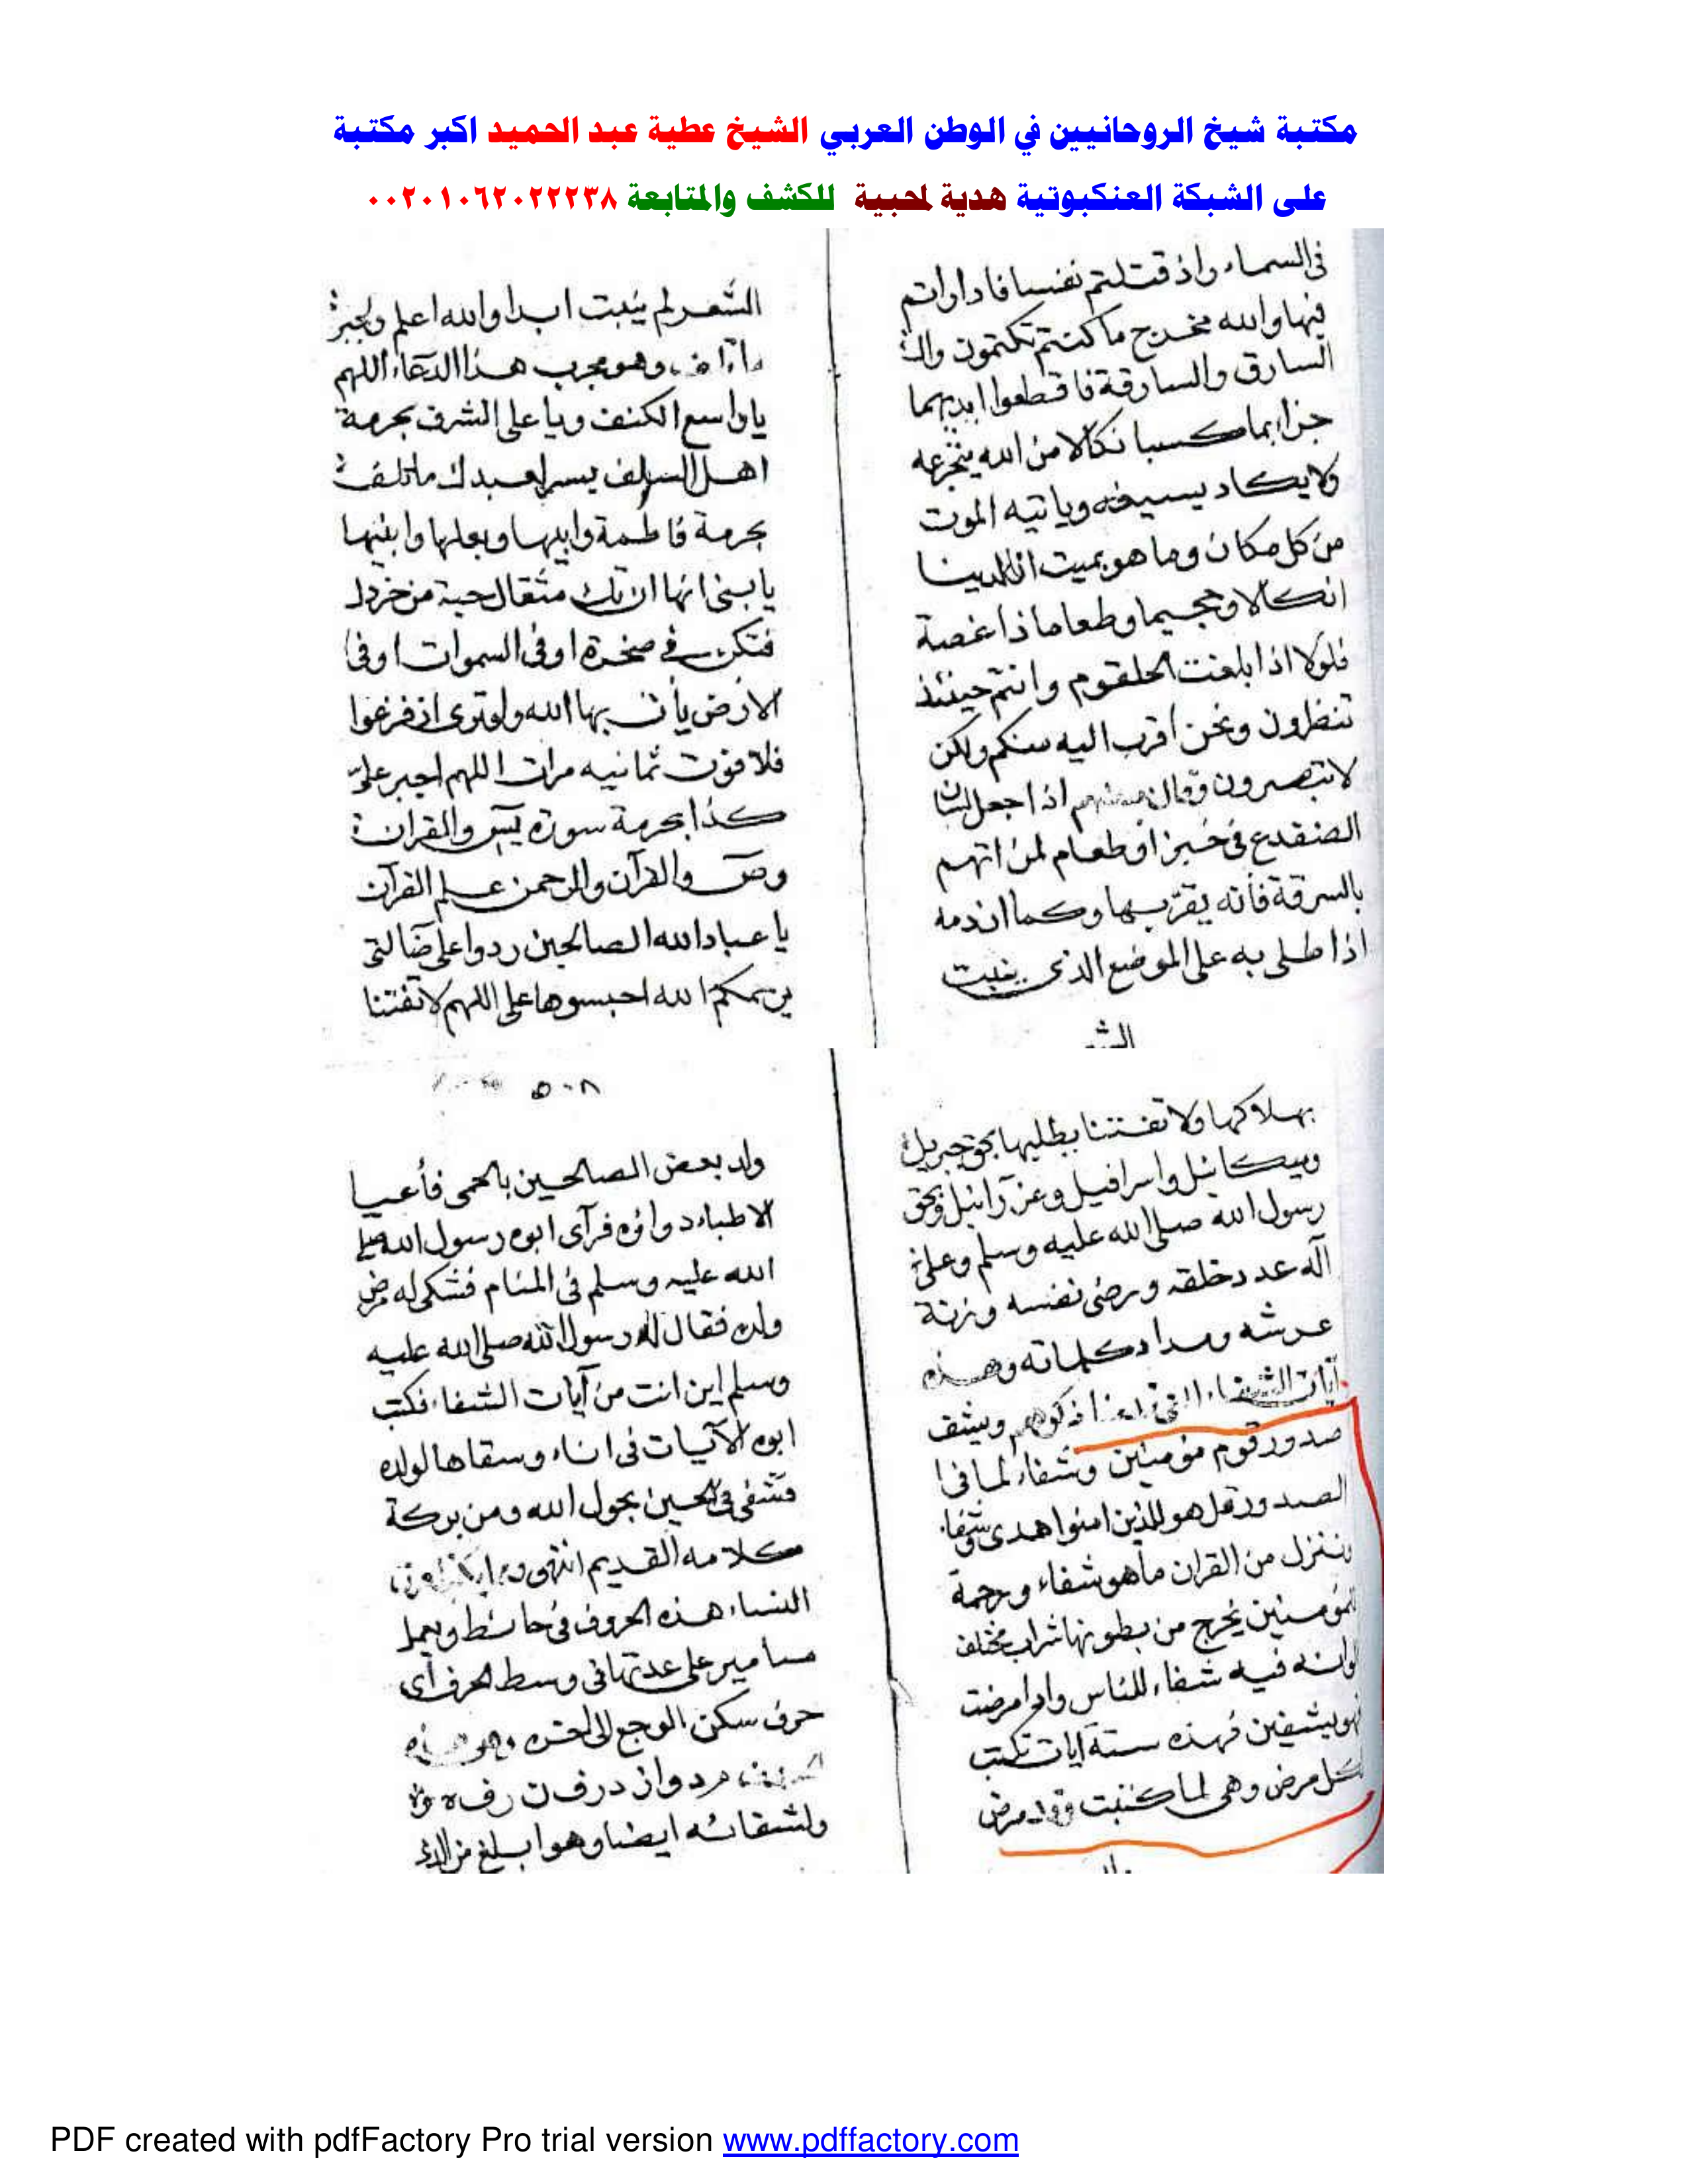 مكتبة شيخ الروحانيين في الوطن العربي الشيخ عطية عبد الحميد اكبر مكتبة
على الشبكة العنكبوتية هدية لمحبية للكشف والمتابعة ٠٠٢٠١٠٦٢٠٢٢٢٣٨
فى السماء واذ قتلتم نفسا فاداراتم
فيها والله مخرج ما كنتم تكتمون
السارق والسارقة فاقطعوا ايديهما
جزا بما كسبا نكالا من الله يتجرعه
ولا يكاد يسيغه وياتيه الموت
من كل مكان وما هو بميت ان لدينا
انكالا وجحيما وطعاما ذا غصة
فلولا اذا بلغت الحلقوم وانتم حينئذ
تنظرون ونحن اقرب اليه منكم ولكن
لا تبصرون وقال بعضهم اذا جعل لسان
الضفدع فى خبز او طعام لمن اتهم
بالسرقة فأنه يقر بها وكما ان دمه
اذا طلى به على الموضع الذى ينبت
الشعر
الشعر لم ينبت ابدا والله اعلم
وهو مجرب هذا الدعاء اللهم
يا واسع الكنف ويا على الشرف بحرمة
اهل السلف يسر لعبدك ما تلف
بحرمة فاطمة وابيها وبعلها وابنيها
يا بنى انها ان تك مثقال حبة من خردل
فتكن في صخرة او فى السموات او فى
الارض يأت بها الله ولو ترى اذ فزعوا
فلا فوت ثمانيه مرات اللهم اجبر على
كذا بحرمة سورة يس والقران
وص والقرآن والرحمن علم القرآن
يا عباد الله الصالحين ردوا على ضالتى
يرحمكم الله احبسوها على اللهم لا تفتنا
بهلاكها ولا تفتننا بطلبها بحق جبريل
وميكائيل واسرافيل وعزرآئيل وبحق
رسول الله صلى الله عليه وسلم وعلى
آله عدد خلقه ورضى نفسه وزنة
عرشه ومداد كلماته وهذه
آيات الشفاء ويشف
صدور قوم مؤمنين وشفاء لما فى
الصدور قل هو للذين امنوا هدى وشفاء
وننزل من القران ما هو شفاء ورحمة
للمؤمنين يخرج من بطونها شراب مختلف
الوانه فيه شفاء للناس واذا مرضت
فهو يشفين فهذه ستة آيات تكتب
لكل مرض وهى لما كتبت وقد مرض
٥٠٨
ولد بعض الصالحين بالحمى فأعيا
الاطباء دواؤه فرآى ابوه رسول الله صلى
الله عليه وسلم فى المنام فشكى له مرض
ولده فقال له رسول الله صلى الله عليه
وسلم اين انت من آيات الشفاء فكتب
ابوه الآيات فى اناء وسقاها لولده
فشفى فى الحين بحول الله ومن بركة
كلامه القديم انتهى
النساء هذه الحروف فى حائط ويعمل
مسامير على عدتها فى وسط الحرف أى
حرف سكن الوجع
ولشقائه ايضا وهو ابلغ من
PDF created with pdfFactory Pro trial version www.pdffactory.com